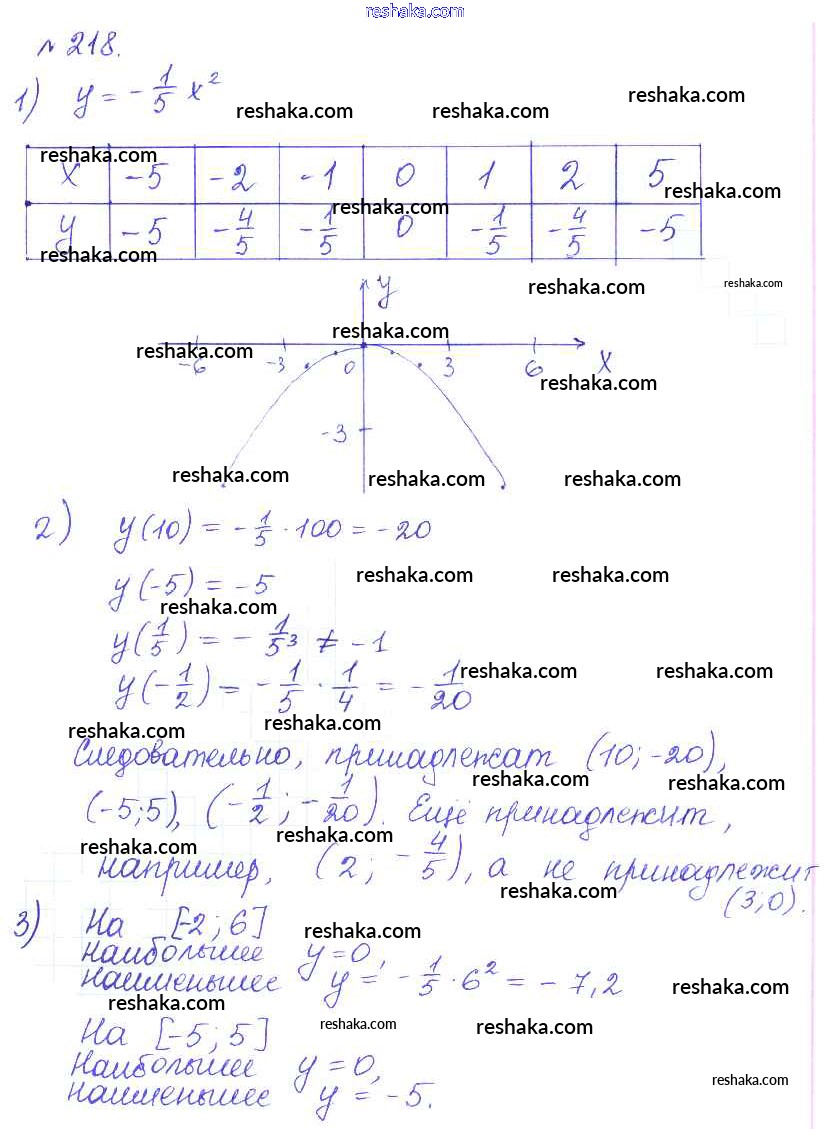 reshaka.com
№ 218.
1) y = -1/5 x²
reshaka.com reshaka.com reshaka.com
reshaka.com
x -5 -2 -1 0 1 2 5
reshaka.com reshaka.com
y -5 -4/5 -1/5 0 -1/5 -4/5 -5
reshaka.com
reshaka.com reshaka.com
y
reshaka.com reshaka.com
-6 -3 0 3 6 x
reshaka.com
-3
reshaka.com reshaka.com reshaka.com
2) y(10) = -1/5 · 100 = -20
y(-5) = -5
reshaka.com reshaka.com reshaka.com
y(1/5) = -1/5³ ≠ -1
y(-1/2) = -1/5 · 1/4 = -1/20
reshaka.com reshaka.com
reshaka.com reshaka.com
Следовательно, принадлежат (10; -20),
reshaka.com reshaka.com
(-5;5), (-1/2; -1/20). Ещё принадлежит,
reshaka.com reshaka.com
например, (2; -4/5), а не принадлежит
reshaka.com
(3;0).
3) На [-2; 6]
reshaka.com
наибольшее y=0,
наименьшее y = -1/5 · 6² = -7,2
reshaka.com reshaka.com
На [-5; 5]
reshaka.com reshaka.com
Наибольшее y=0,
наименьшее y = -5.
reshaka.com